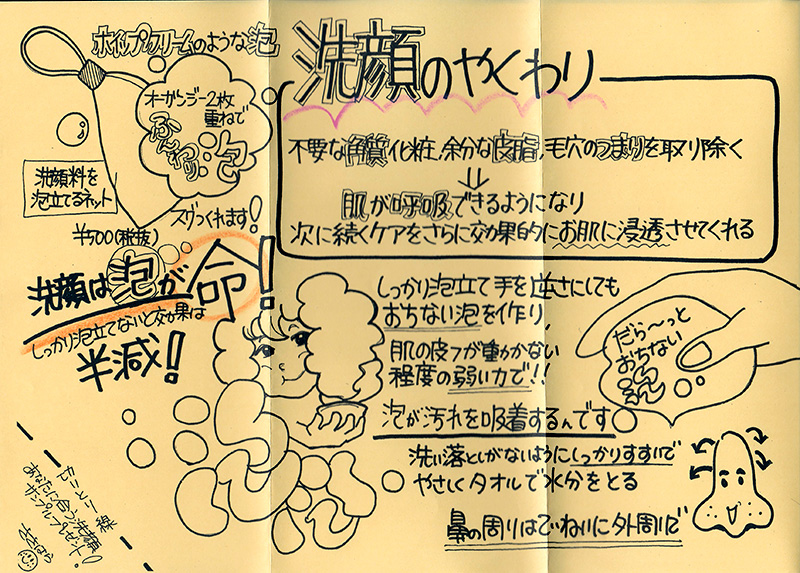 ホイップクリームのような泡
オーガンジー2枚
重ねで
ふんわり泡
洗顔料を
泡立てるネット
スグつくれます!
¥500(税抜)
洗顔は泡が命!
しっかり泡立てないと効果は
半減!
洗顔のやくわり
不要な角質化粧、余分な皮脂、毛穴のつまりを取り除く
⇓
肌が呼吸できるようになり
次に続くケアをさらに効果的にお肌に浸透させてくれる
しっかり泡立て手を逆さにしても
おちない泡を作り、
肌の皮フが動かない
程度の弱い力で!!
泡が汚れを吸着するんです
だら〜っと
おちない
泡
洗い落としがないようにしっかりすすいで
やさしくタオルで水分をとる
鼻の周りはていねいに外周りで
あなたに合う洗顔
サンプルプレゼント!
ささはら